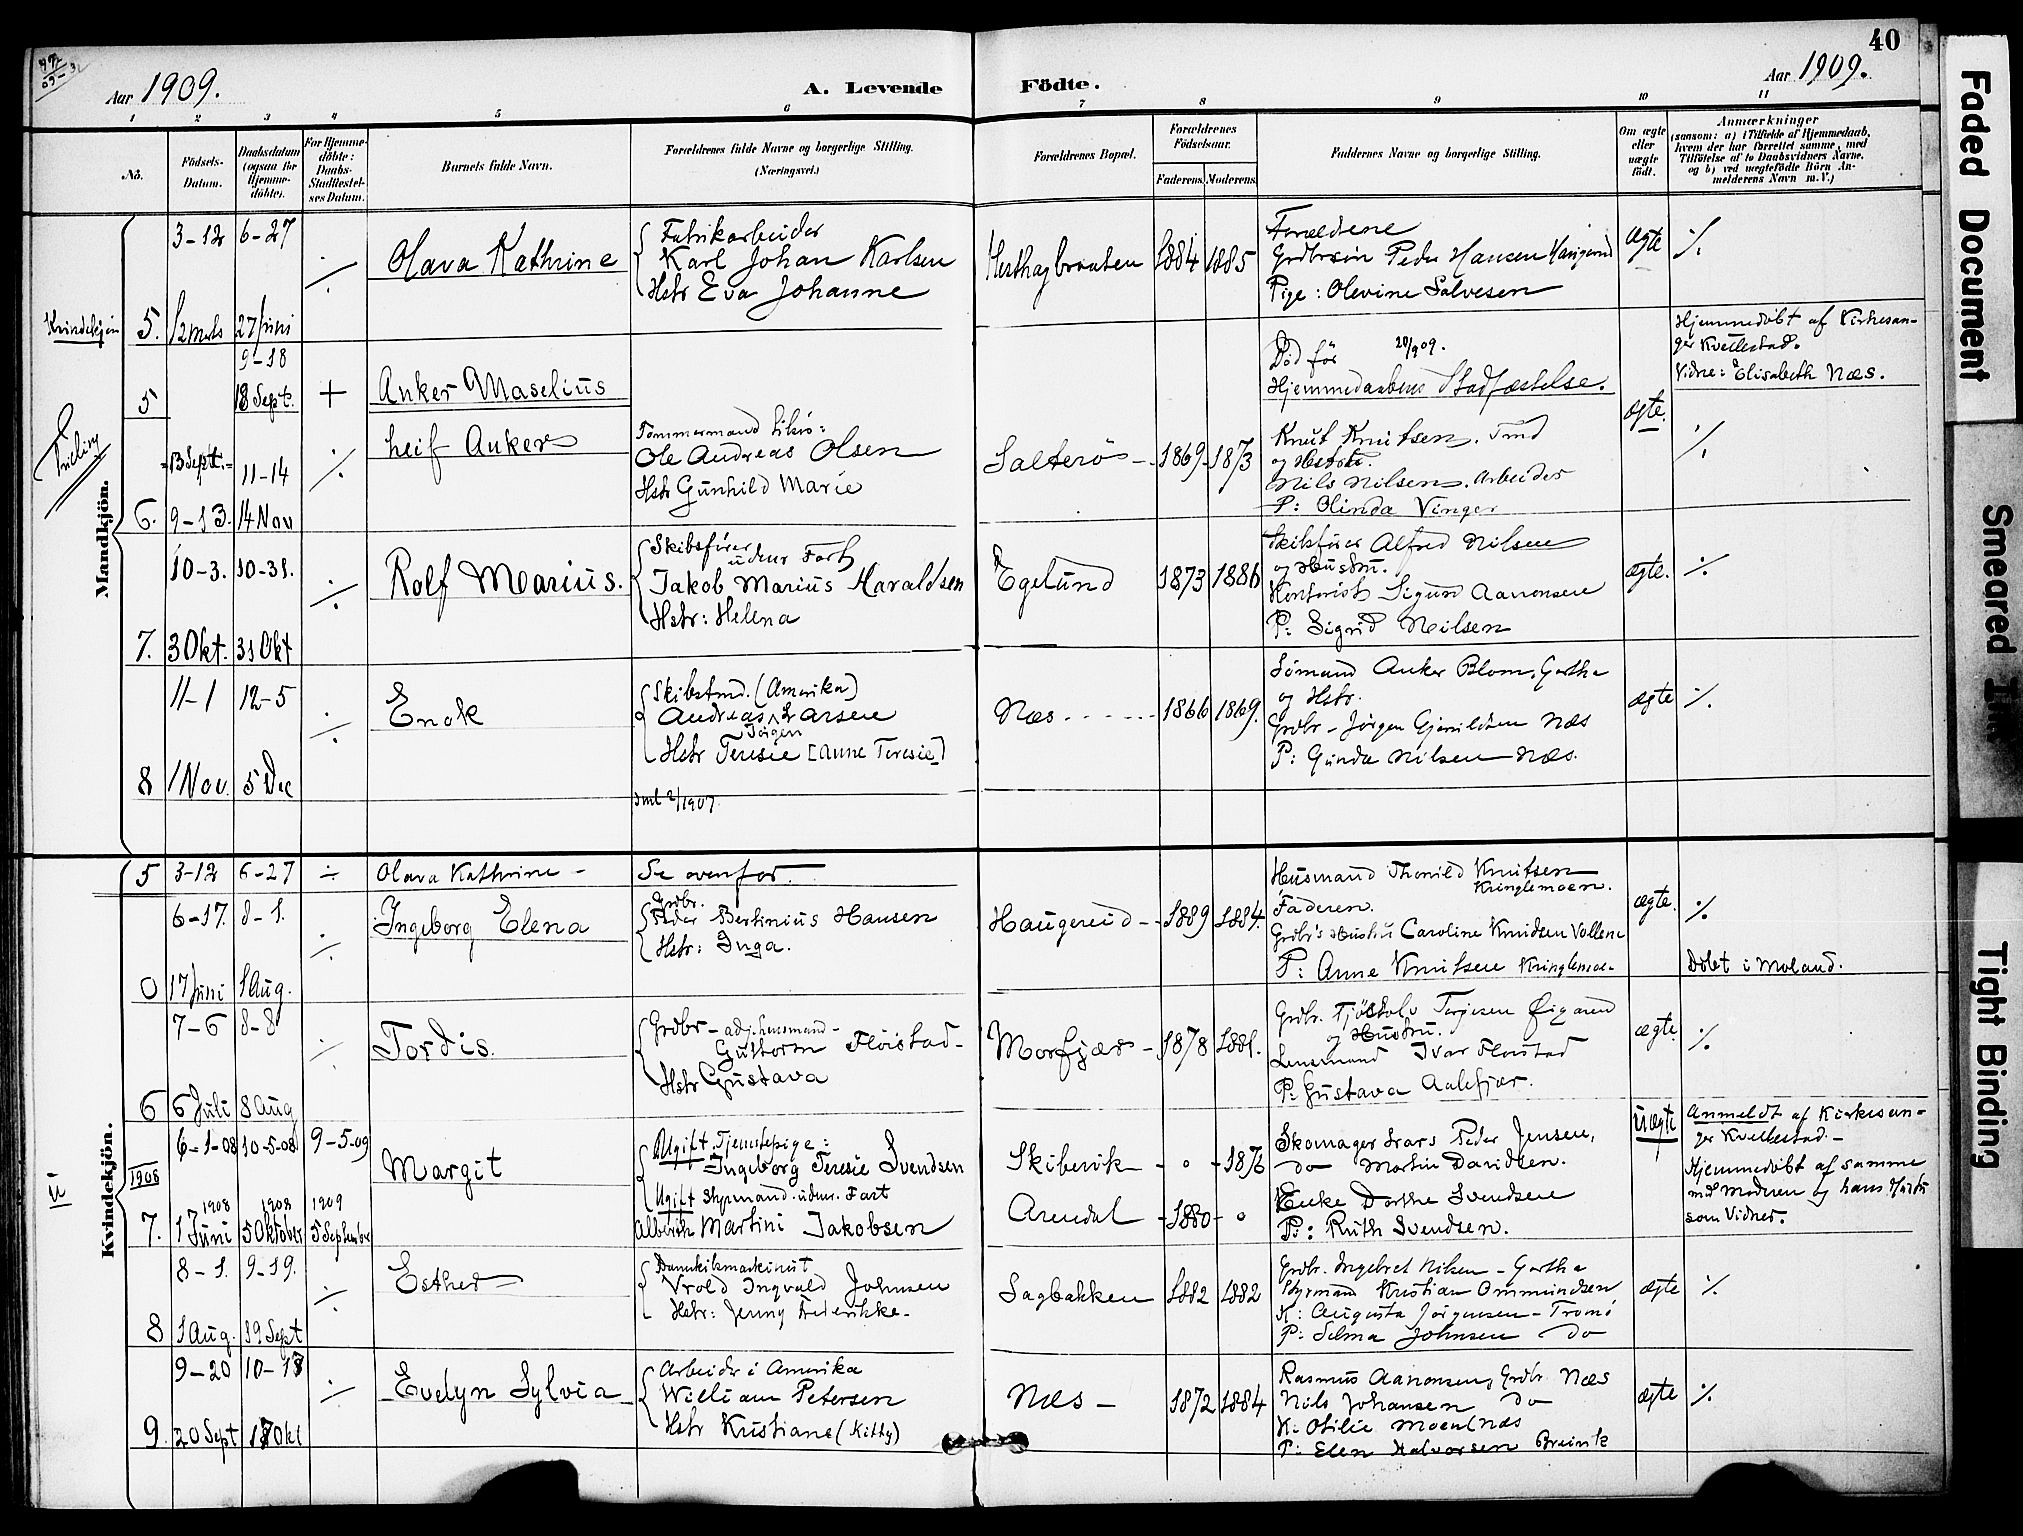 40
Aar 1909.
A. Levende Födte.
Aar 1909.
1 2 3 4 5 6 7 8 9 10 11
No.
Födsels-Datum.
Daabsdatum (ogsaa for Hjemme-döbte).
For Hjemme-döbte: Daabs-Stadfæstel-ses Datum.
Barnets fulde Navn.
Forældrenes fulde Navne og borgerlige Stilling.
(Næringsvei.)
Forældrenes Bopæl.
Forældrenes Födselsaar.
Faderens. Moderens.
Faddernes Navne og borgerlige Stilling.
Om ægte eller uægte födt.
Anmærkninger
(saasom: a) i Tilfælde af Hjemmedaab, hvem der har forrettet samme, med Tilföielse af to Daabsvidners Navne, og b) ved uægtefödte Börn Anmelderens Navn m. V.)
Mandkjön.
Kvindekjön
5. 3-12 6-27 ./.
12 Marts 27 Juni
Olava Kathrine
Fabrikarbeider
Karl Johan Karlsen
Hstr Eva Johanne
Hesthagbraaten 1884 1885
Forældrene
Grdbrsøn Peder Hansen Haugerud
Pige: Olevine Salvesen
Ægte ./.
5 9-18
18 Sept. +
Anker Maselius
Død før 20/9 09.
Hjemmedaabens Stadfæstelse.
Hjemmedøbt af Kirkesan-
ger Kvellestad.
Vidne: Elisabeth Næs.
Tvilling
13 Sept. 11-14 ./.
6. 9-13. 14 Nov
Leif Anker
Tømmermand
Ole Andreas Olsen
Hstr Gunhild Marie
Salterö 1869 1873
Knut Knutsen. Tmd
og Hstr.
Nils Nilsen. Arbeider
P: Olinda Vinger
ægte. ./.
10-3. 10-31. ./.
7. 3 Okt. 31 Okt
Rolf Marius.
Skibsfører
udenr Fart
Jakob Marius Haraldsen
Hstr: Helena
Egelund 1873 1886
Skibsfører Alfred Nilsen
og Hustru.
Kontorist Sigurd Aanonsen
P: Sigrid Nilsen
ægte. ./.
11-1 12-5 ./.
8 1 Nov. 5 Dec
Enok
Skibstmd. (Amerika)
Andreas Larsen
Jörgen
Hstr Teresie [Anne Teresie]
Næs 1866 1869.
Sømand Anker Blom, Gartha
og Hstr.
Grdbr - Jörgen Gjeruldsen Næs
P: Gunda Nilsen Næs.
ægte ./.
2/1907
Kvindekjön.
5 3-12 6-27 ./. Olava Kathrine - Se ovenfor.
6-17. 8-1. ./.
0 17 Juni 1 Aug.
Ingeborg Elena
Grdbr.
Peder Bertinius Hansen
Hstr: Inga.
Haugerud 1889 1884.
Husmand Thorvild Knutsen
Kringlemoen.
Faderen.
Grdbr's Hustru Caroline Knudsen Vollene
P: Anne Knutsen Kringlemo-
ægte. ./.
Døbt i Moland.
7-6 8-8 ./.
6 6 Juli 8 Aug
Tordis.
Grdbr - adj. lensmand -
Guttorm Fløistad -
Hstr Gustava
Morfjær 1878 1881.
Grdbr. Tjøstolv Terjesen Øigaren
og Hustru.
Lensmand Ivar Fløistad
P: Gustava Aalefjær.
ægte. ./.
6-1-08 10-5-08 9-5-09
1908
1908 1908 1909
7. 1 Juni 5 Oktober 5 September
Margit
Ugift Tjenstepige:
Ingeborg Teresie Svendsen
Ugift Styrmand. udenr. Fart
Albrick Martini Jakobsen
Skibevik - o - 1876
Arendal - 1880 - o
Skomager Lars Peder Jensen,
do Martin Davidsen.
Enke Dorthe Svendsen
P: Ruth Svendsen.
Uægte
Anmeldt af Kirkesan-
ger Kvellestad.
Hjemmedøbt af samme
med Moderen og hans Hustr
som Vidner.
8-1. 9-19. ./.
8 1 Aug. 19 Sept
Esther
Dampskibsmaskinist
Vrold Ingvald Johnsen
Hstr: Jenny Frederikke.
Sagbakken 1882 1882
Grdbr. Ingebret Nilsen - Gartha
Styrmand Kristian Ommundsen
K: Augusta Jörgensen - Tromö
P: Selma Johnsen do
ægte ./.
9-20 10-17 ./.
9. 20 Sept 17 Okt
Evelyn Sylvia
Arbeider i Amerika
William Petersen
Hstr Kristiane (Kitty)
Næs - 1872 1884
Rasmus Aanonsen, Grdbr Næs
Nils Johansen do
K: Otilie Moen (Næs
P: Elen Halvorsen
ægte ./.
Faded Document
Smeared Ink
Tight Binding